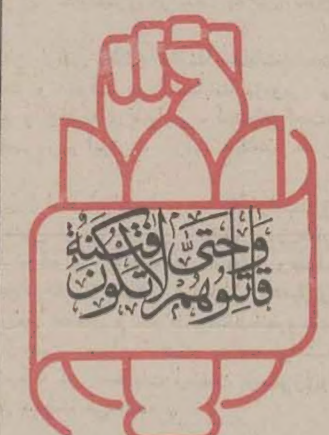 وَقَاتِلُوهُمْ حَتَّى لَاتَكُونَ فِتْنَةٌ